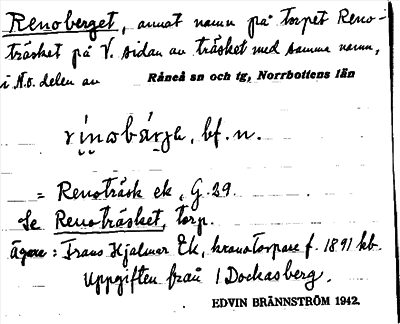 Renoberget, annat namn på torpet Reno-
träsket på V. sidan av träsket med samma namn,
i N.ö. delen av Råneå sn och tg, Norrbottens län
bf. n.
= Renoträsk ek, G. 29.
Se Renoträsket, torp.
Ägare: Frans Hjalmar Ek, kronotorpare f. 1891 kb.
Uppgiften från 1 Dockasberg.
EDVIN BRÄNNSTRÖM 1942.